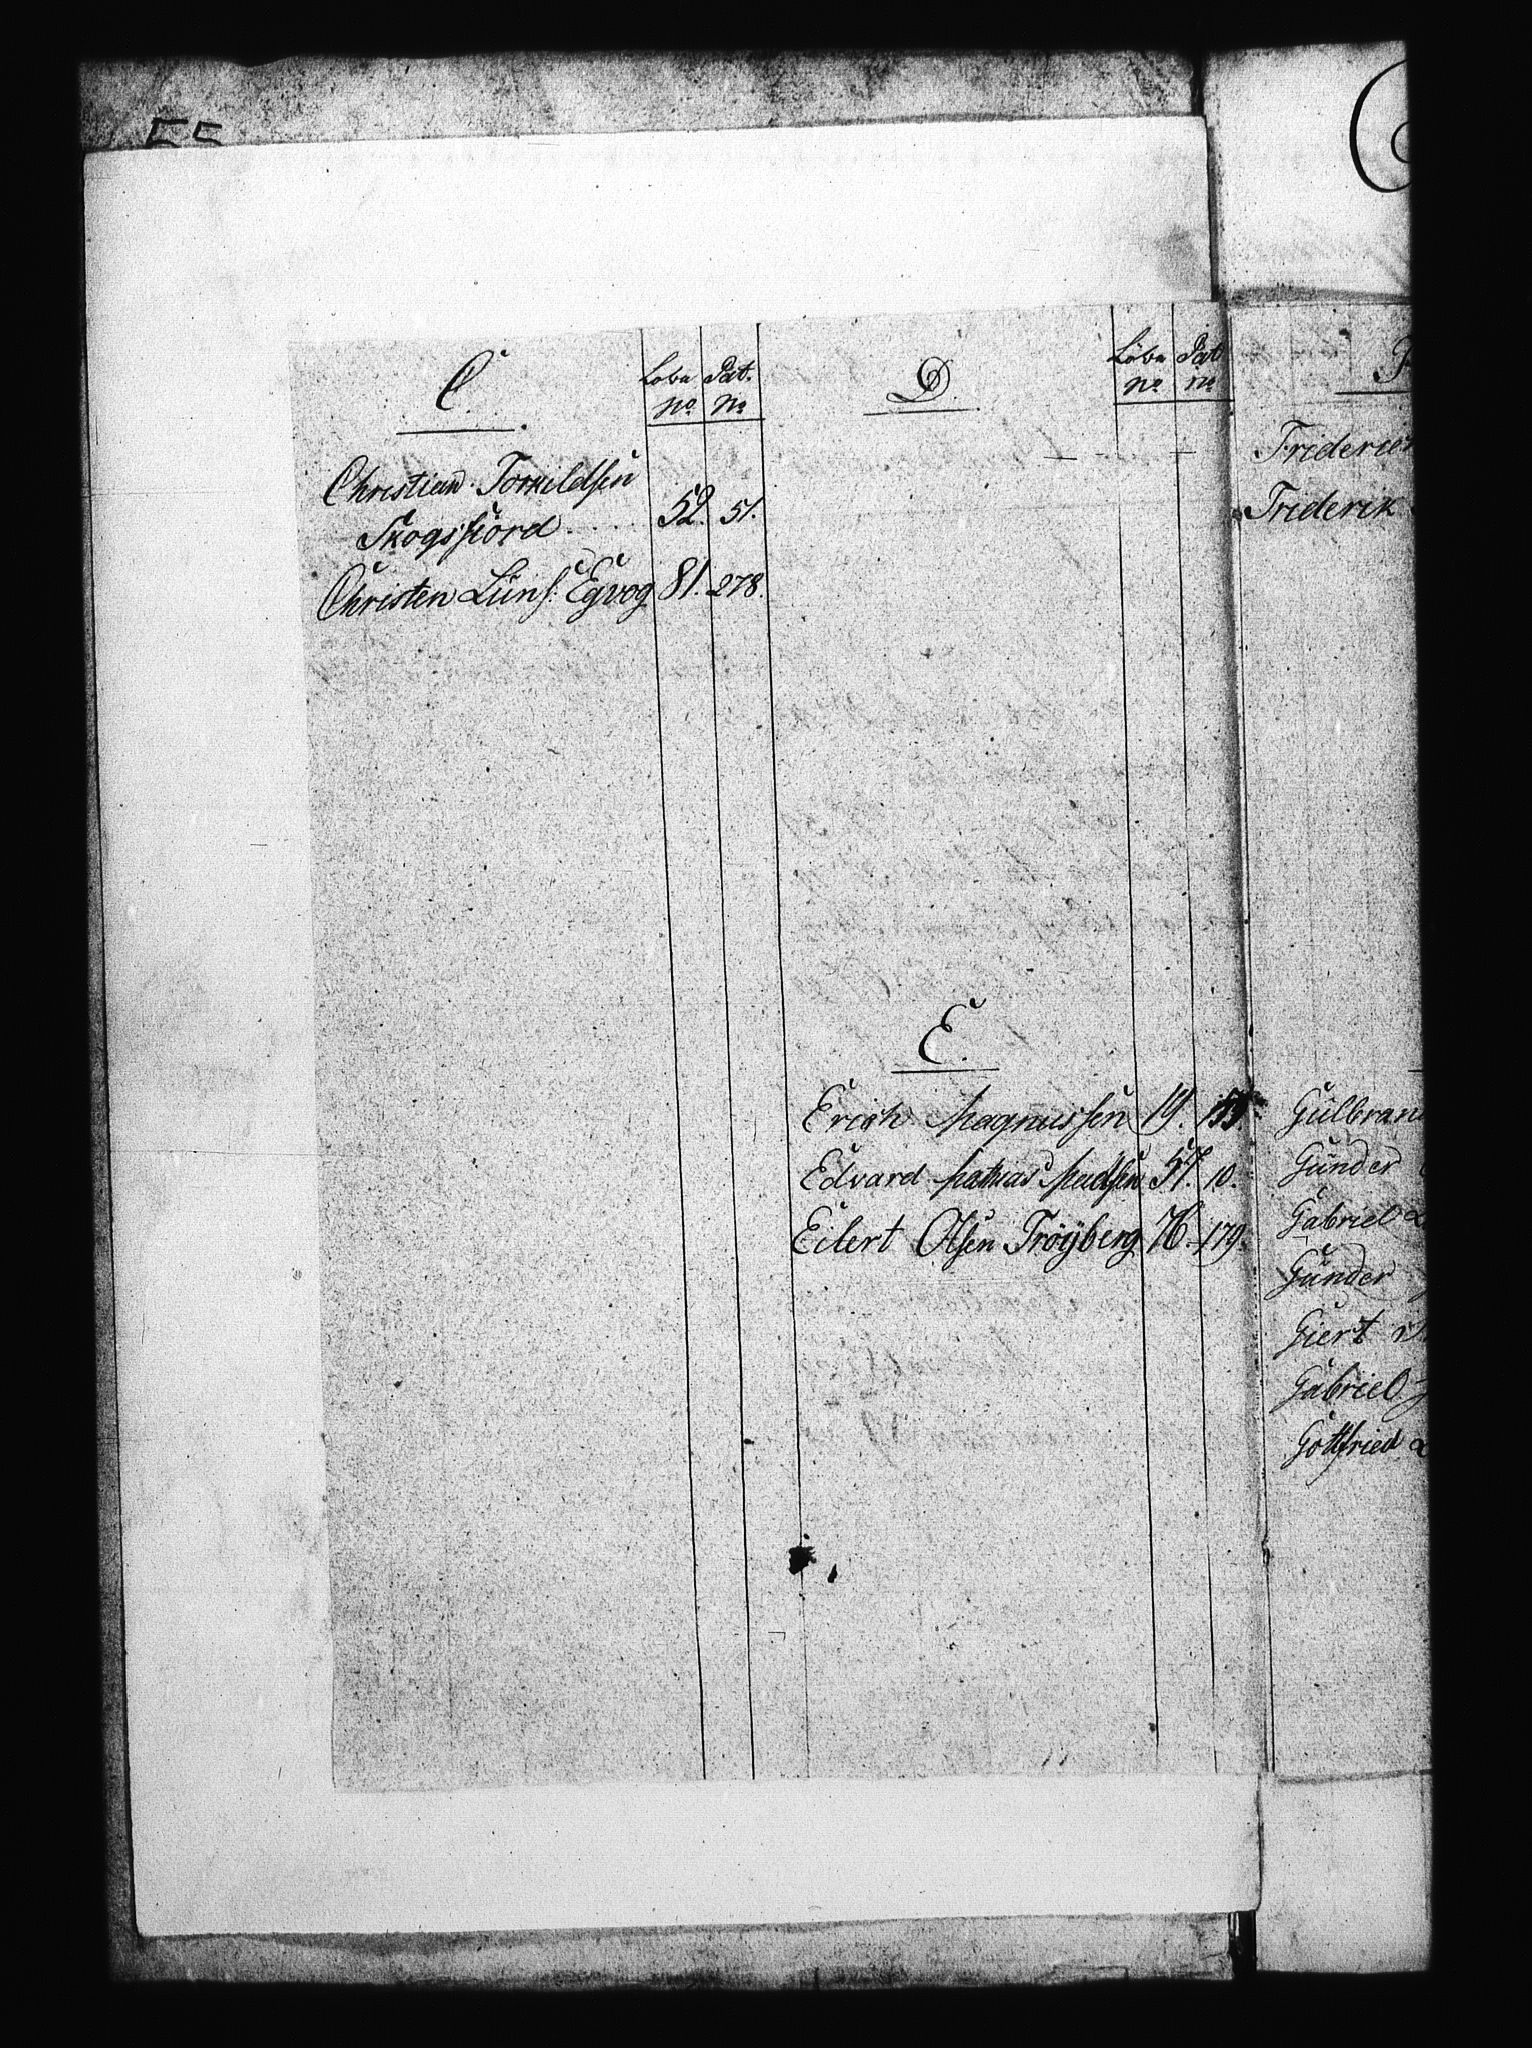 55
C.
Lobe Pat.
No No
Christian Torkildsen
Skogsfiord 52. 51.
Christen Luns. Egvog 81. 278.
D.
Löbe Pat
No No
E.
Erich Magnussen 19.
Edvard Mathias Madsen 57. 10.
Eilert Olsen Tröÿberg 76. 179.
F
Friderich
Friderik
Gulbrand
Gunder
Gabriel
Gunder
Giert
Gabriel
Gottfried